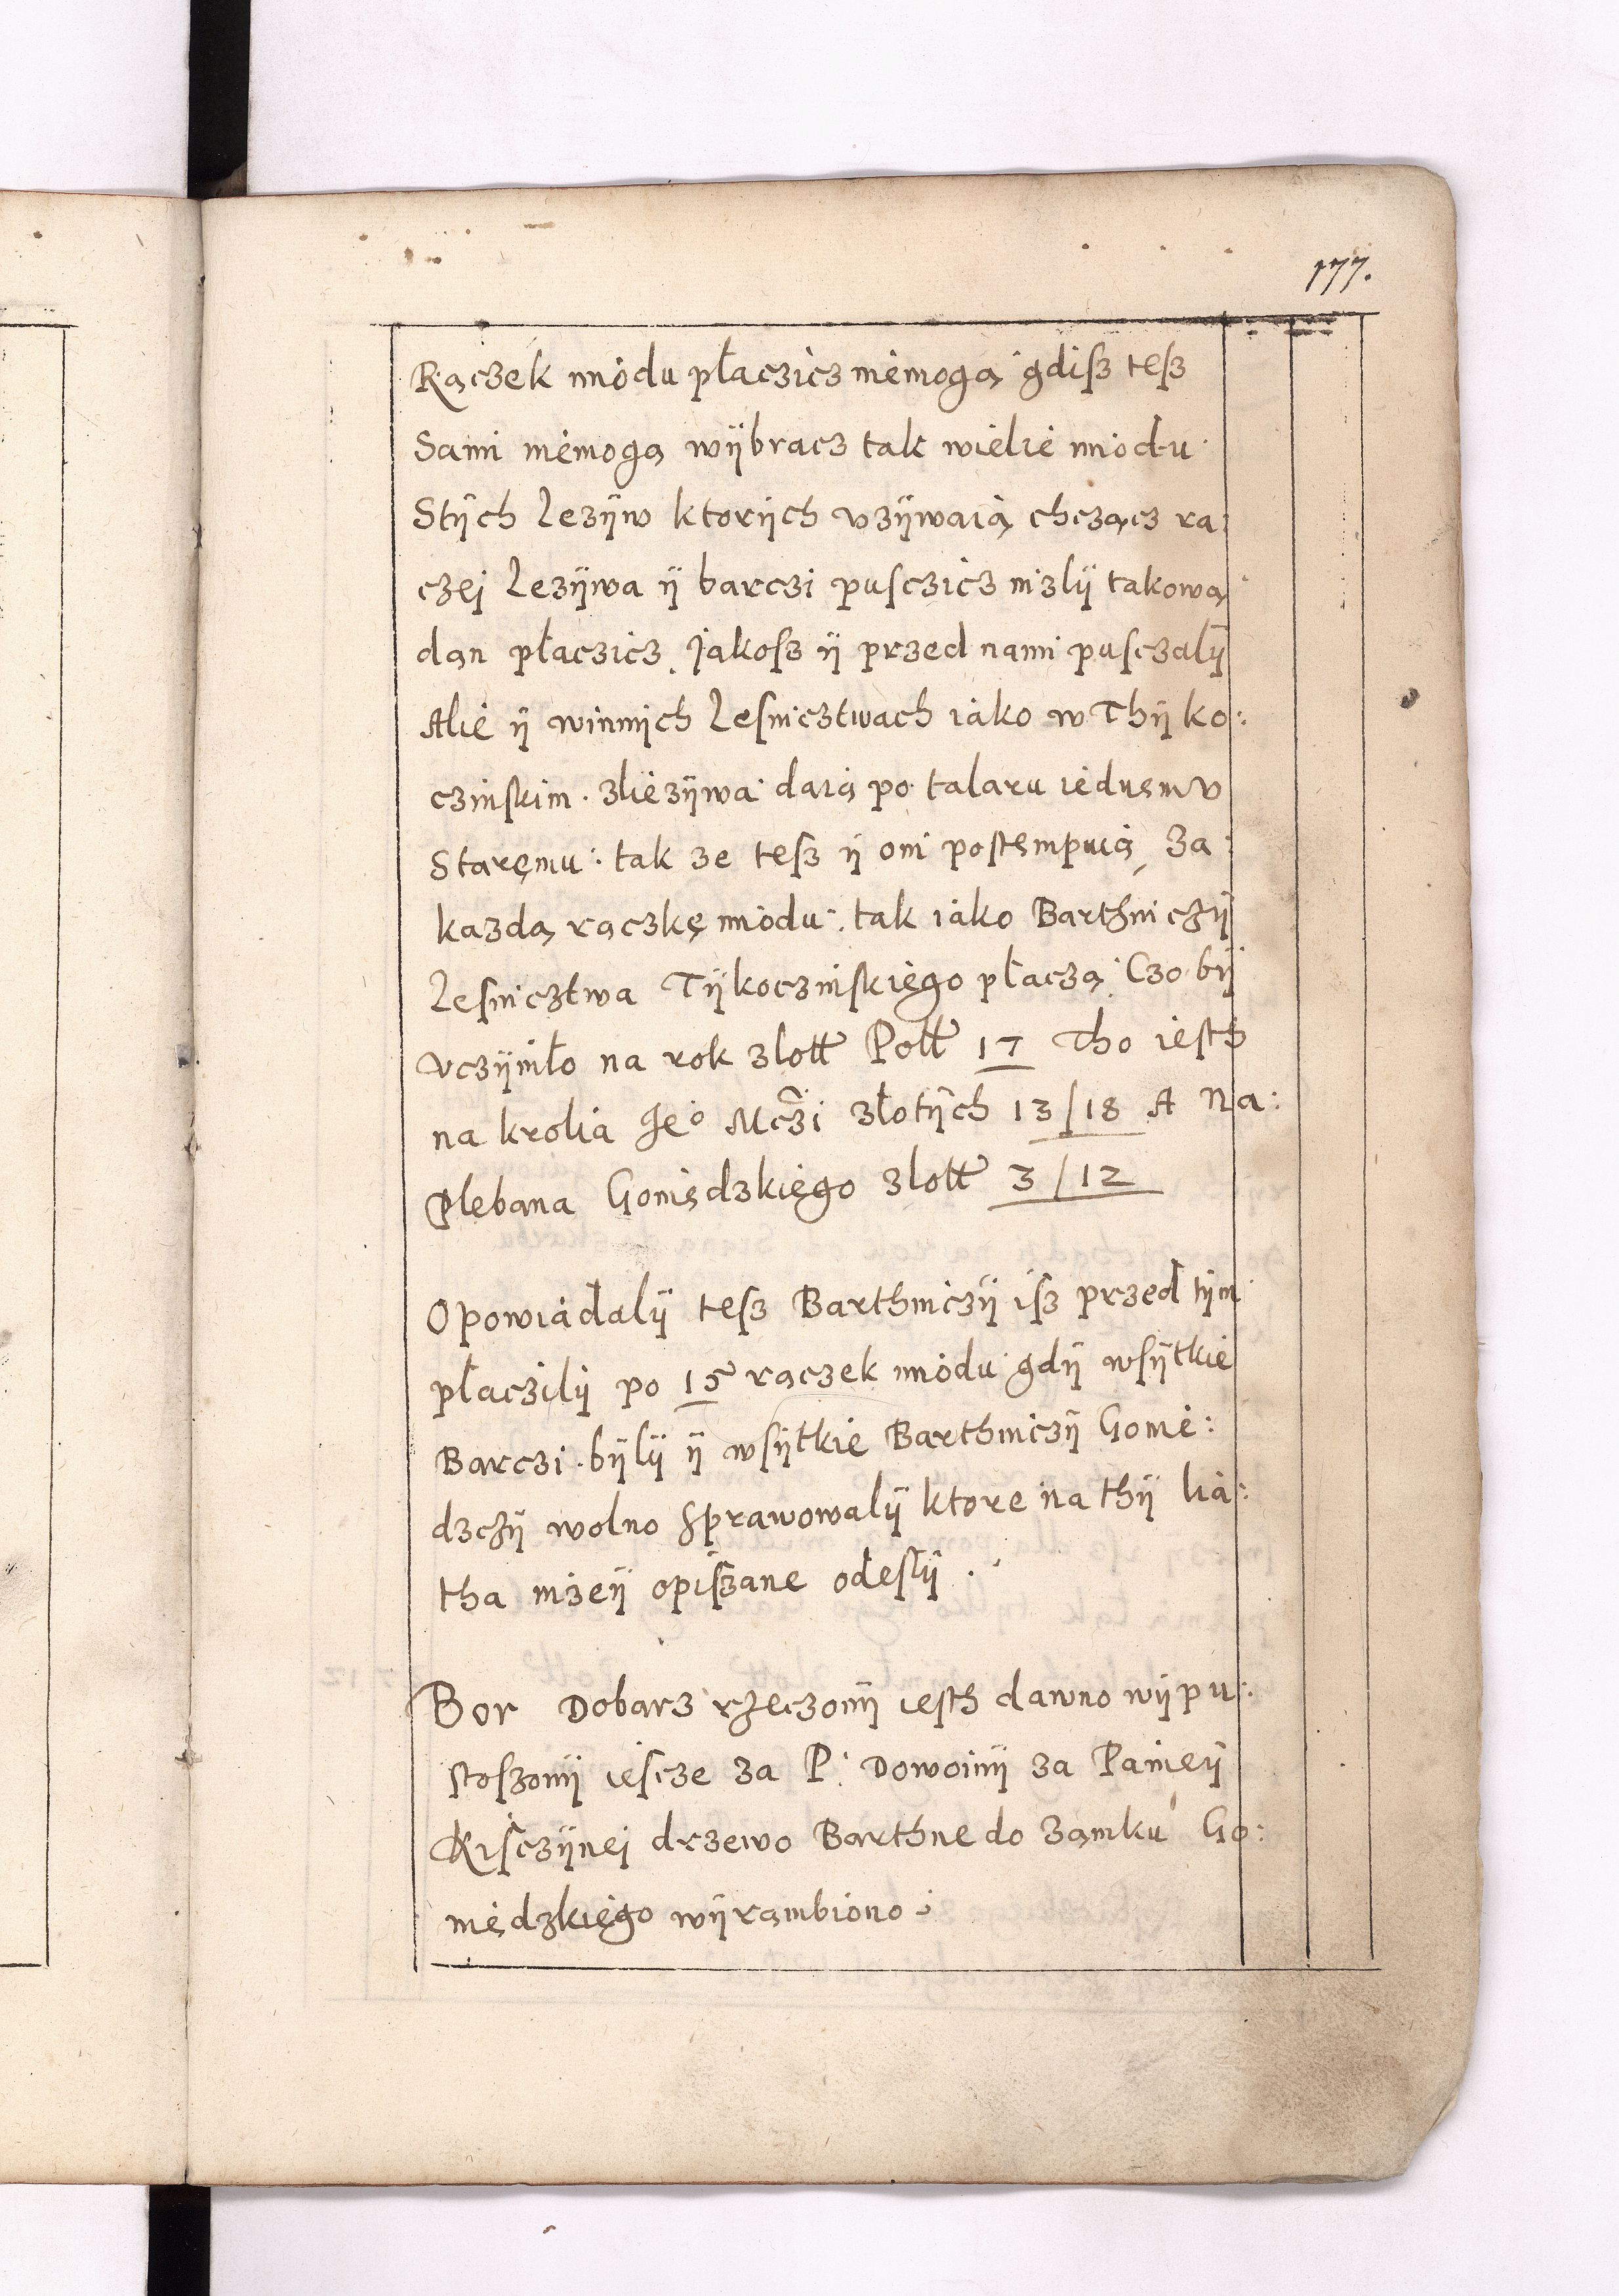 177.
Rączek miodu płaczicz niemogą gdisz tesz
Sami niemogą wÿbracz tak wielie miodu
Stÿch Lezÿw ktorÿch vzÿwaią chcząc ra:
czei Lezÿwa ÿ barczi pusczicz nizlÿ takową
dan płaczicz, Jakosz ÿ przed nami pusczalÿ
Alie ÿ winnÿch Lesnicztwach iako w Thÿko:
czinskim. zliezÿwa daią po talaru iednemv
Staręmu: tak ze tesz ÿ oni postempuią, za:
kazdą rączkę miodu: tak iako Barthniczÿ
Lesnicztwa Tÿkoczinskięgo płaczą: Czo bÿ
vczÿniło na rok złott Poll 17 Tho iesth
na krolia Jeo Mczi złotÿch 13/18 A Na:
Plebana Goniędzkięgo złott 3/12
Opowiadalÿ tesz Barthniczÿ isz przed tÿm
płaczilÿ po 15 rączek miodu gdÿ wsÿtkie
Barczi bÿlÿ ÿ wsÿtkie Barthniczÿ Gonie:
dzczÿ wolno sprawowalÿ ktore na thÿ lia:
tha nizeÿ opiszane odeslÿ.
Bor Dobarz rzeczonÿ iesth dawno wÿpu:
stoszonÿ iescze za P: Dowoinÿ za Panieÿ
Kisczÿnei drzewo Barthne do zamku Go:
niędzkięgo wÿrambiono